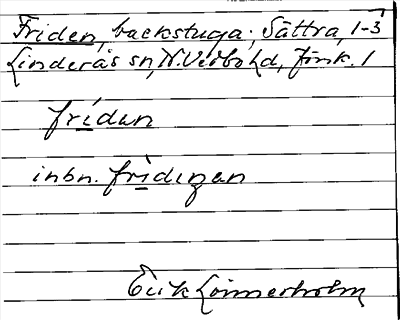 Friden, backstuga; Sättra, 1-3
Linderås sn, N. Vedbo hd, Jönk. l
frídən
inbn. frìdeŋən
Erik Lönnerholm